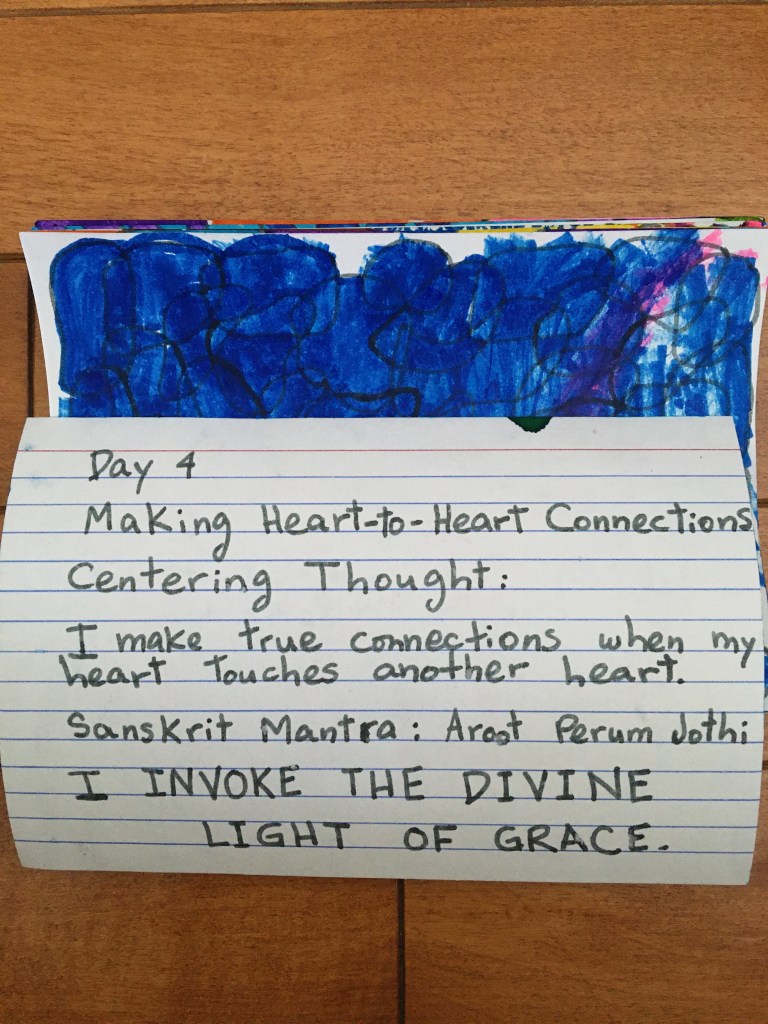 Day 4
Making Heart-to-Heart Connections
Centering Thought:
I make true connections when my
heart touches another heart.
Sanskrit Mantra: Aroot Perum Jothi
I INVOKE THE DIVINE
LIGHT OF GRACE.